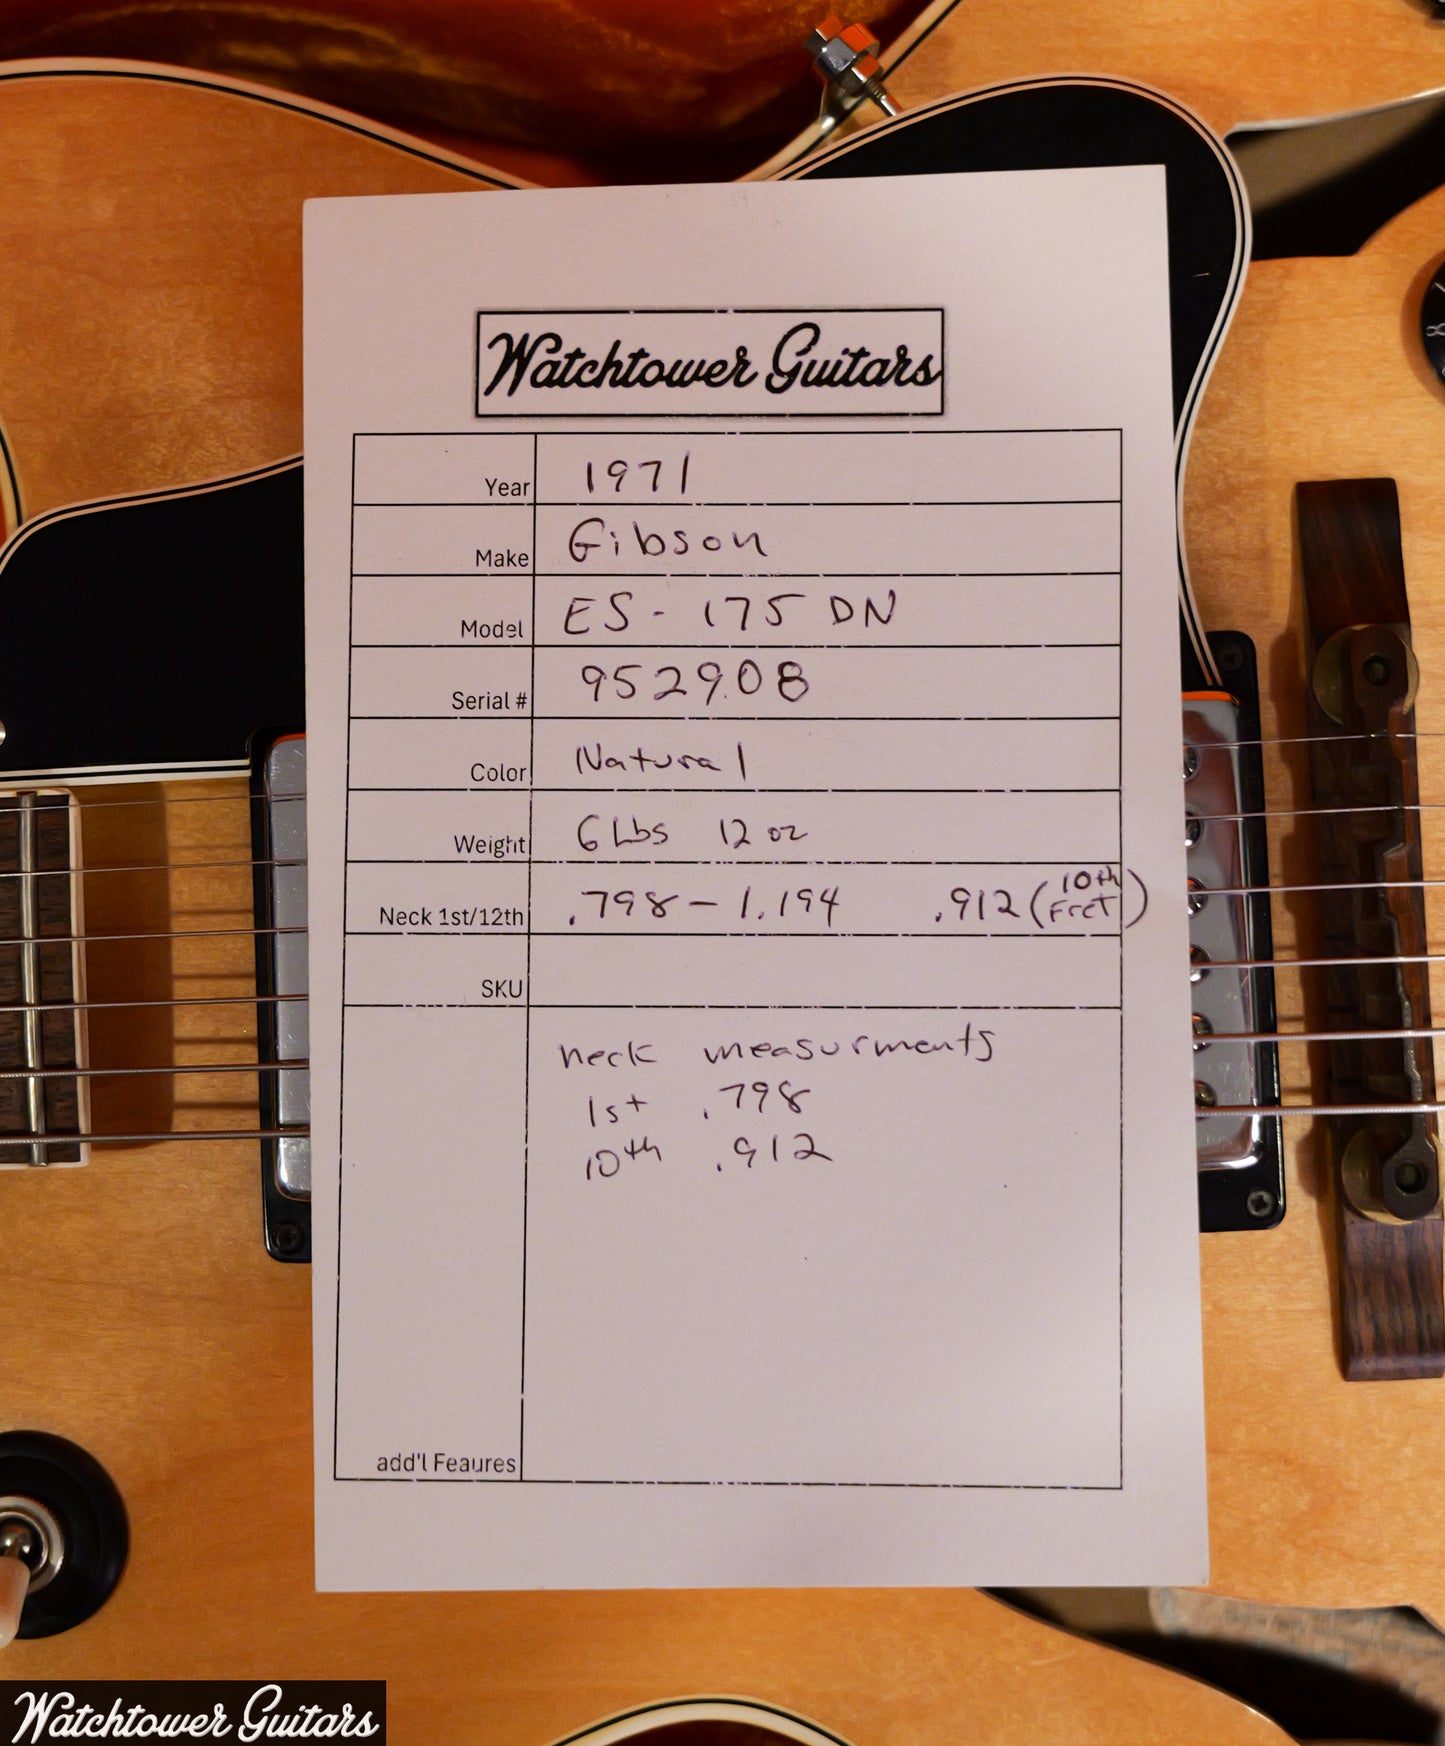 Watchtower Guitars
Year 1971
Make Gibson
Model ES-175 DN
Serial # 952908
Color Natural
Weight 6 Lbs 12 oz
Neck 1st/12th .798 - 1.194 .912 (10th Fret)
SKU
neck measurments
1st .798
10th .912
add'l Feaures
Watchtower Guitars